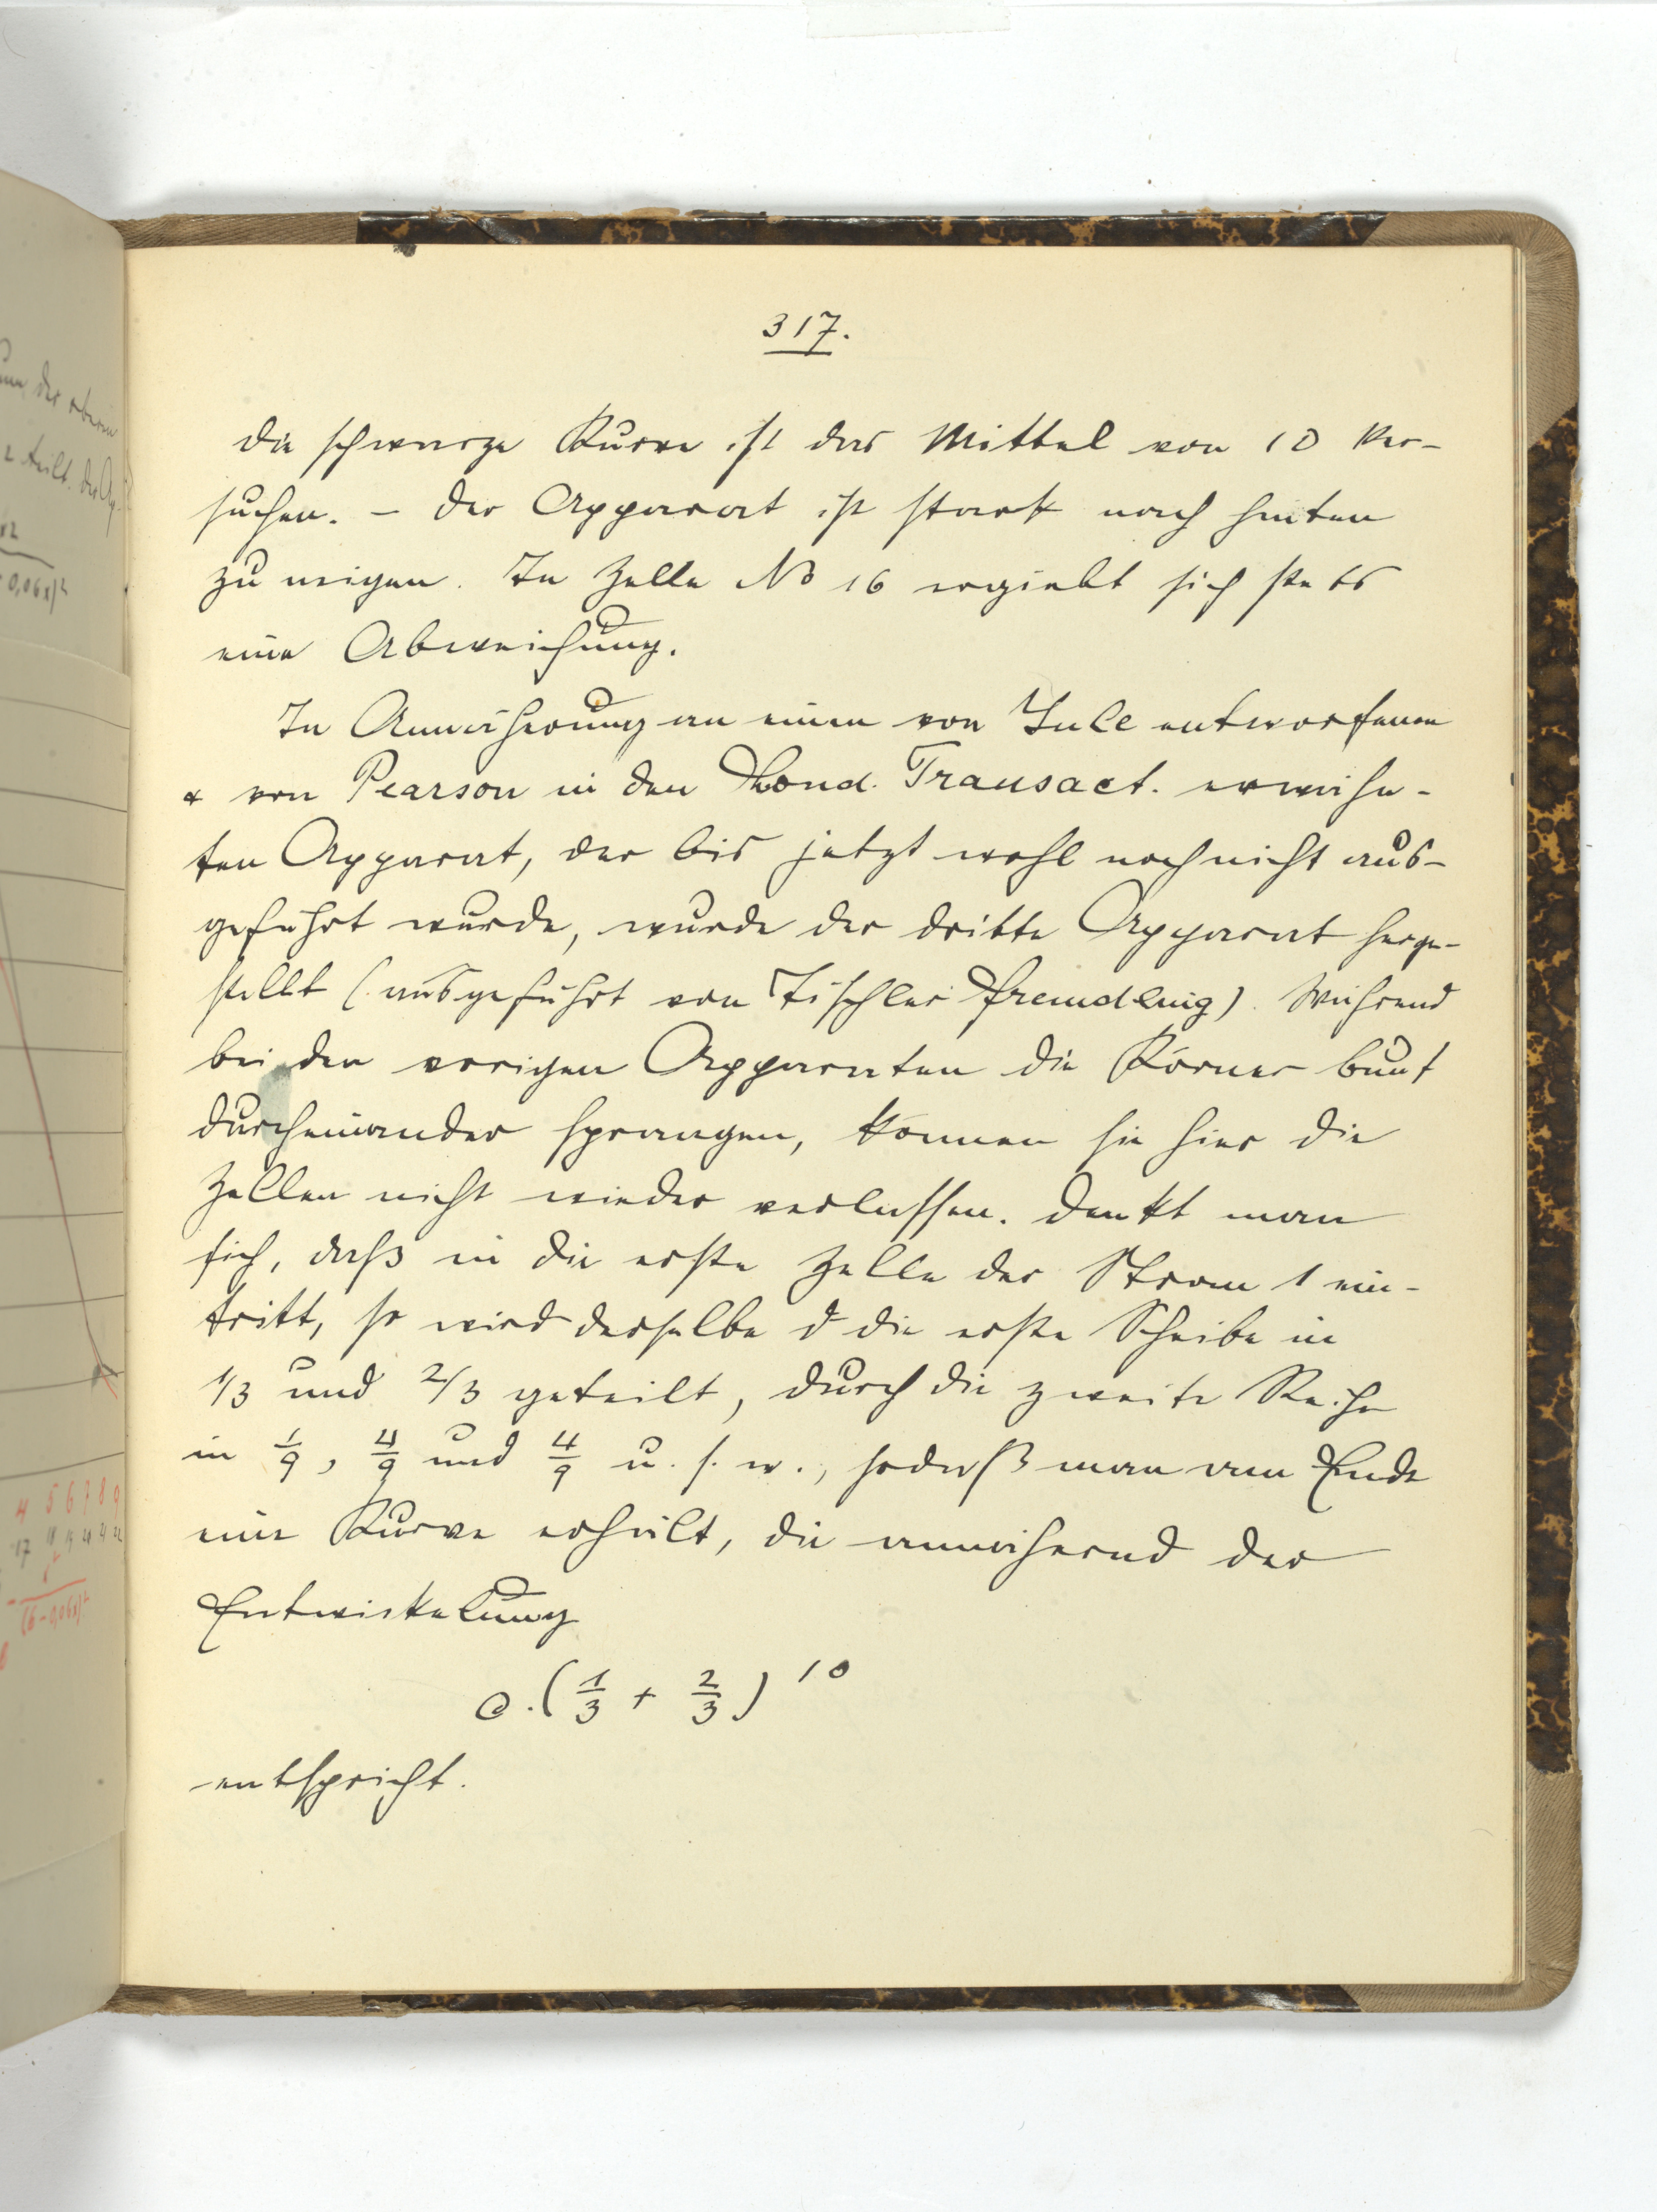 317.
Die schwarze Kurve ist das Mittel von 10 Ver-
suchen. – Der Apparat ist stark nach hinten
zu neigen. In Zelle No 16 ergiebt sich stets
eine Abweichung.
In Annäherung an einen von Yule entworfenen
& von Pearson in den Lond. Transact. erwähn-
ten Apparat, der bis jetzt wohl noch nicht aus-
geführt wurde, wurde der dritte Apparat herge-
stellt (ausgeführt von Tischler Fremdling). Während
bei den vorigen Apparaten die Körner bunt
durcheinander sprangen, können sie hier die
Zellen nicht wieder verlassen. Denkt man
sich, daß in die erste Zelle der Strom 1 ein-
tritt, so wird derselbe d die erste Scheibe in
1/3 und 2/3 geteilt, durch die zweite Reihe
in 1/9, 4/9 und 4/9 u. s. w., sodaß man am Ende
eine Kurve erhält, die annähernd der
Entwickelung
c.(1/3 + 2/3)^10
entspricht.
der oberen
2 teilt. der
0,06x)²
4 5 6 7 8 9
17
(6-0,06x)²